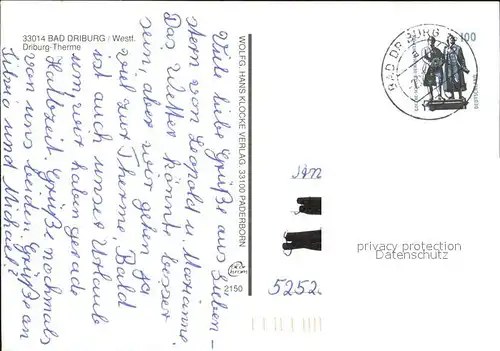 33014 BAD DRIBURG / Westf.
Driburg-Therme
Viele liebe Grüße aus
stern von Leopold u. Marianne.
Das Wetter könnte besser
sein, aber wir gehen ja
viel zur Therme. Bald
ist auch unser Urlaub
um, wir haben gerade
Halbzeit. Grüße nochmals
von uns beiden. Grüße an
Silvia und Michael!
WOLFG. HANS KLOCKE VERLAG, 33100 PADERBORN
2150
BAD DRIBURG
100
5252
privacy protection
Datenschutz